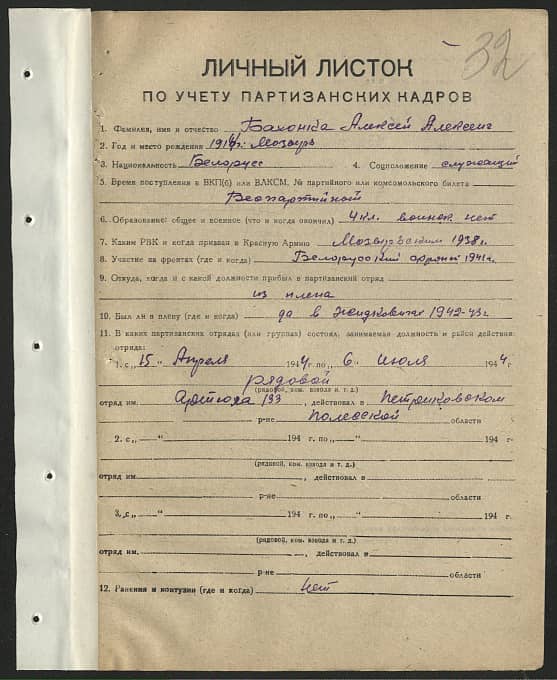 32
ЛИЧНЫЙ ЛИСТОК
ПО УЧЕТУ ПАРТИЗАНСКИХ КАДРОВ
1. Фамилия, имя и отчество Алексей Алексеев
2. Год и место рождения Мозырь
3. Национальность Белорусс 4. Соцположение служащий
5. Время поступления в ВКП(б) или ВЛКСМ, № партийного или комсомольского билета
Беспартийный
6. Образование: общее и военное (что и когда окончил) 4 кл. военн. нет
7. Каким РВК и когда призван в Красную Армию Мозырьским 1938 г.
8. Участие на фронтах (где и когда) Белорусский фронт 1941 г.
9. Откуда, когда и с какой должности прибыл в партизанский отряд
из плена
10. Был ли в плену (где и когда) да в Житковичах 1942-43 г.
11. В каких партизанских отрядах (или группах) состоял, занимаемая должность и район действия
отряда:
1. с „15“ Апреля 1944 г. по „6“ Июля 1944 г.
рядовой
(рядовой, ком. взвода и т. д.)
отряд им. 133, действовал в Петриковском
р-не Полесской области
2. с „ “ 194 г. по „ “ 194 г.
(рядовой, ком. взвода и т. д.)
отряд им. , действовал в
р-не области
3. с „ “ 194 г. по „ “ 194 г.
(рядовой, ком. взвода и т. д.)
отряд им. , действовал в
р-не области
12. Ранения и контузии (где и когда) нет